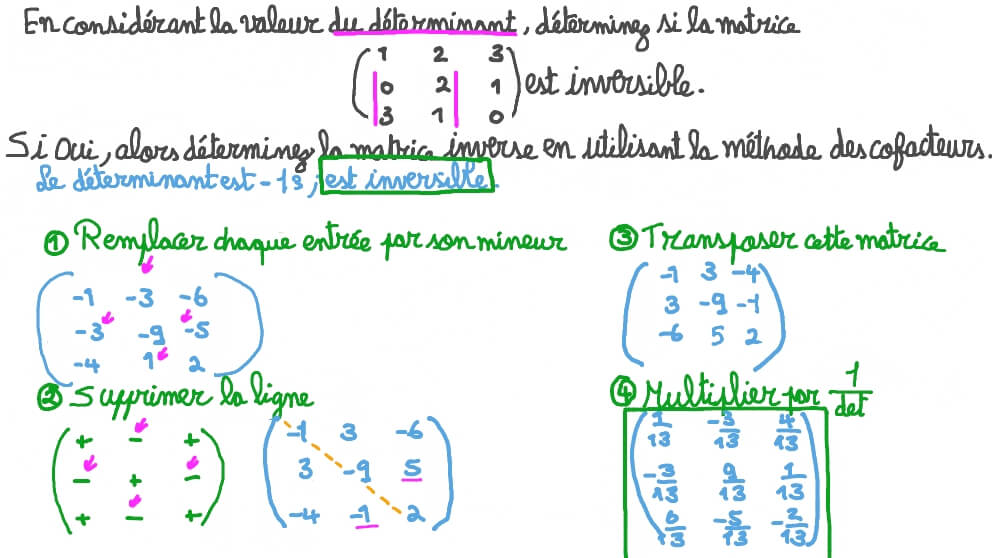 En considérant la valeur du déterminant, déterminez si la matrice
1 2 3
0 2 1 est inversible.
3 1 0
Si oui, alors déterminez la matrice inverse en utilisant la méthode des cofacteurs.
Le déterminant est -13 ; est inversible.
① Remplacer chaque entrée par son mineur
-1 -3 -6
-3 -9 -5
-4 1 2
② Supprimer la ligne
+ - +
- + -
+ - +
-1 3 -6
3 -9 5
-4 -1 2
③ Transposer cette matrice
-1 3 -4
3 -9 -1
-6 5 2
④ Multiplier par 1/det
1/13 -3/13 4/13
-3/13 9/13 1/13
6/13 -5/13 -2/13